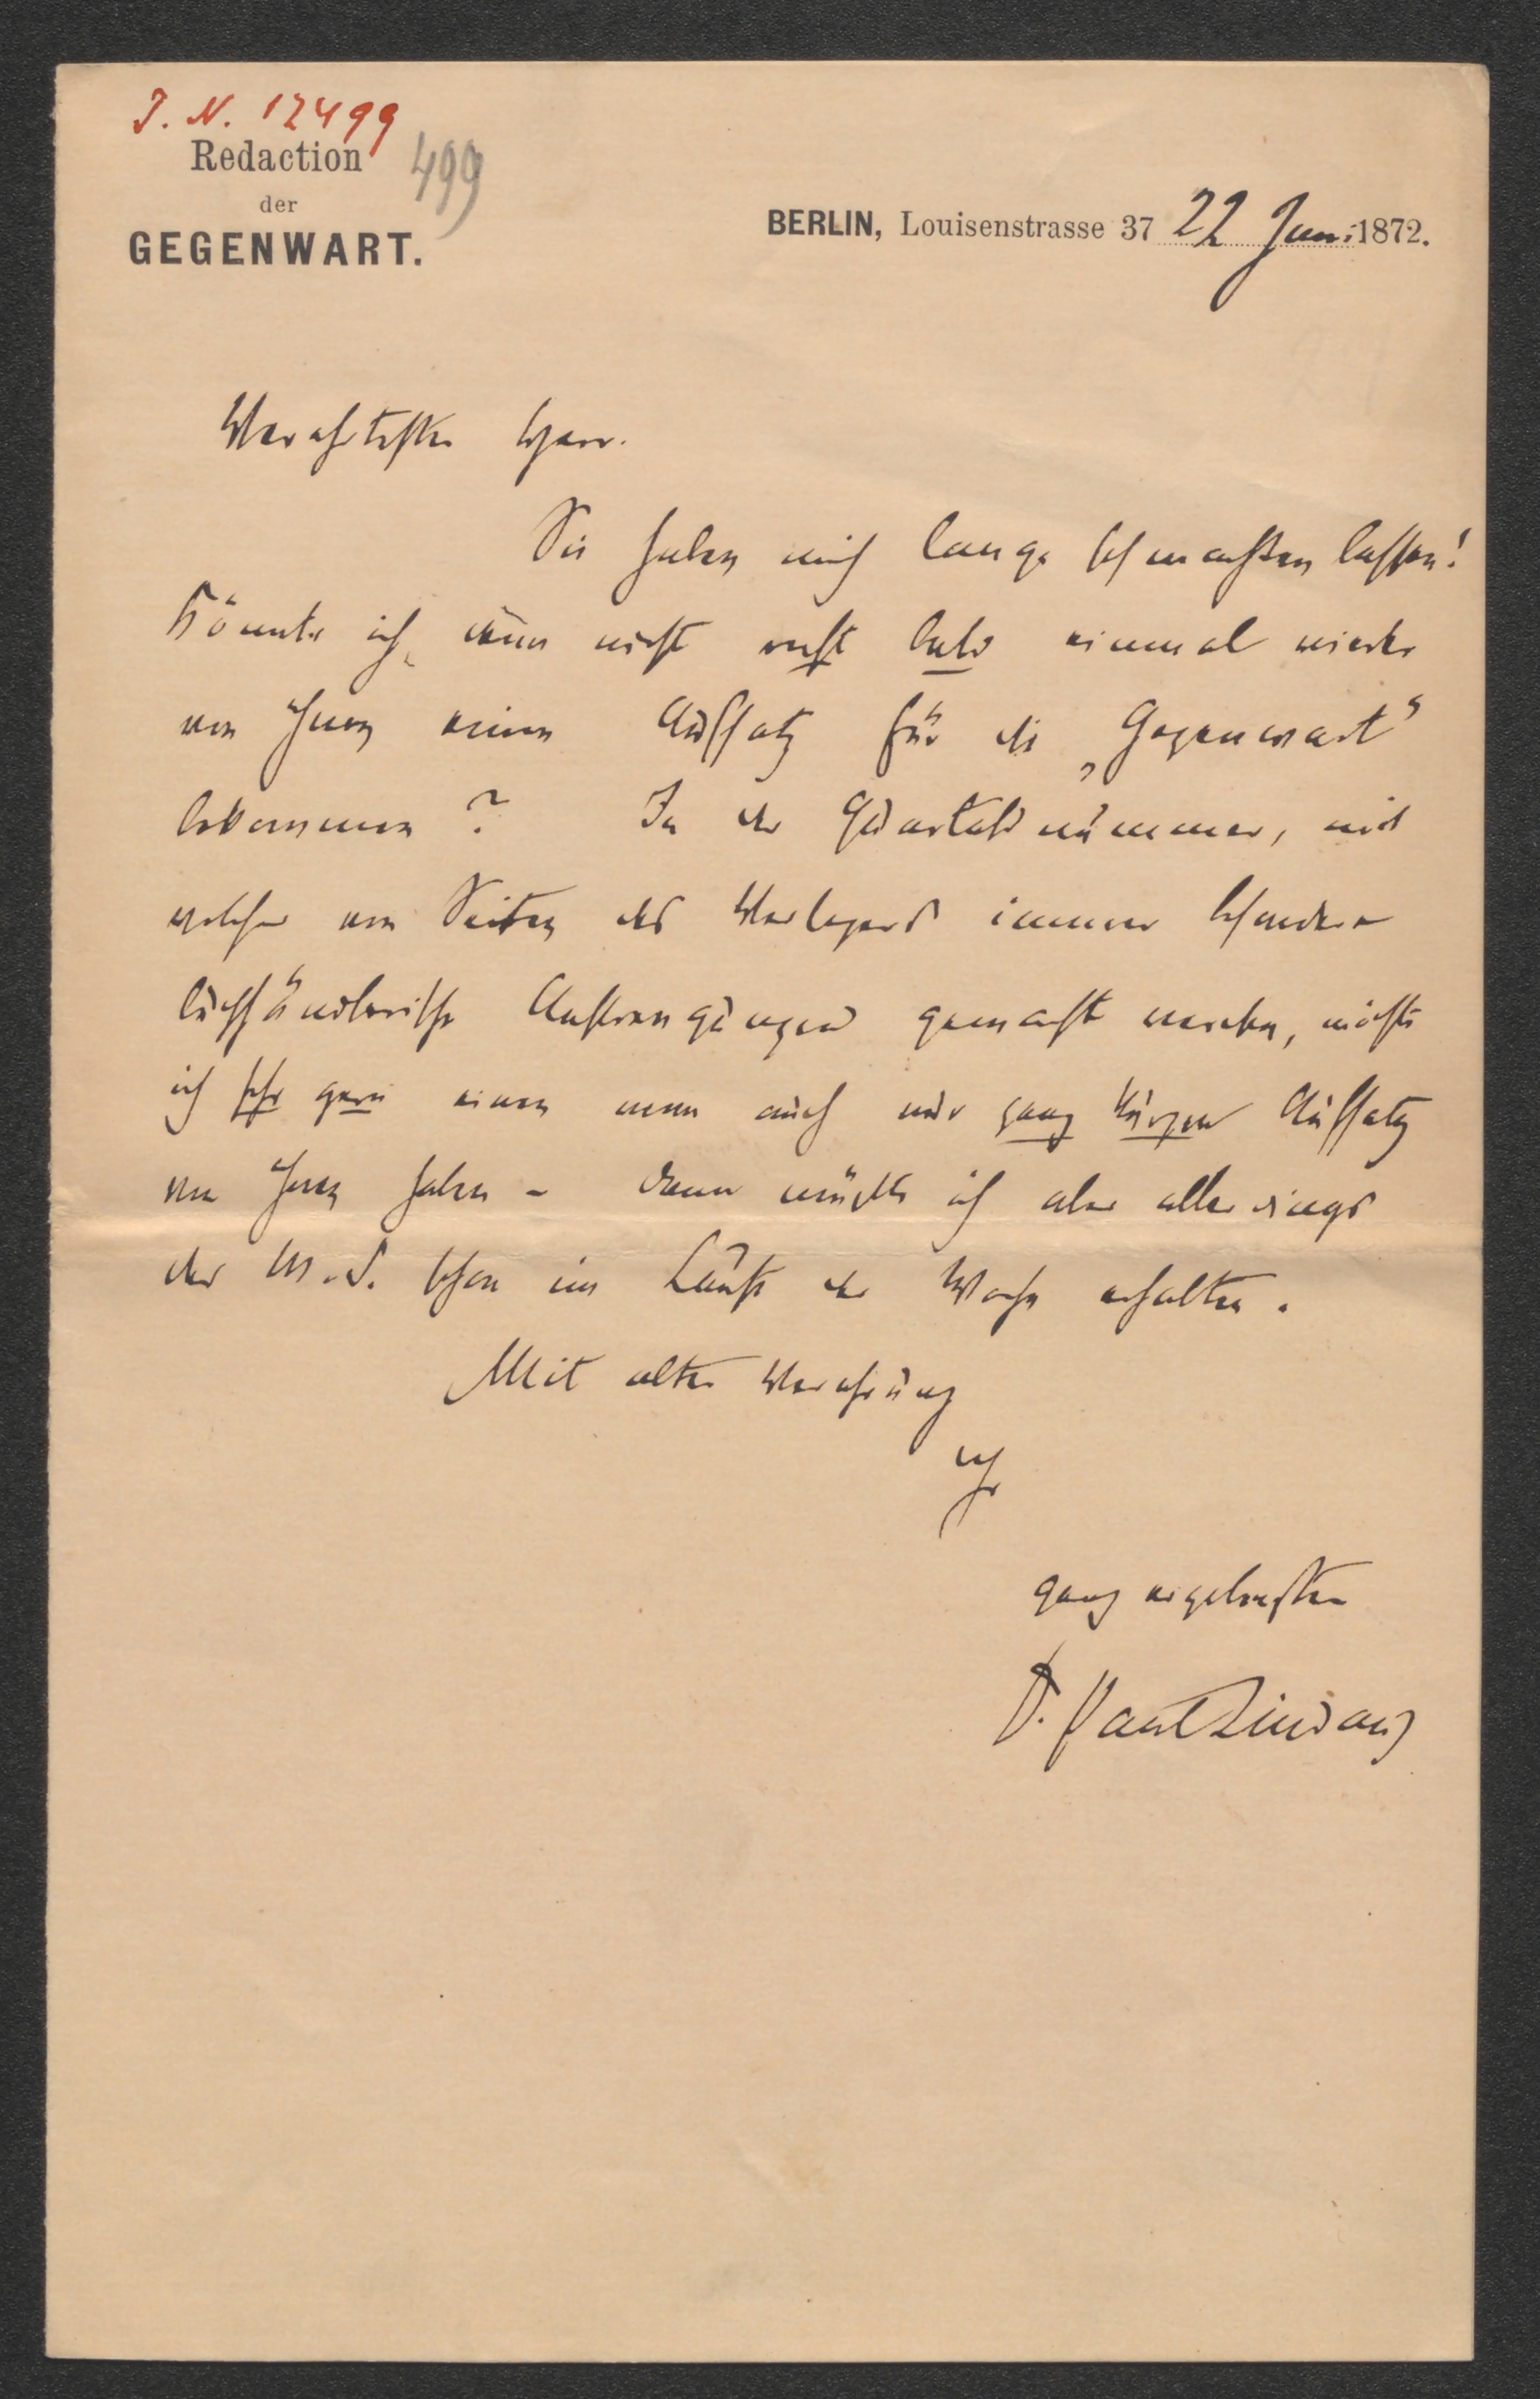 I. N. 12499
Redaction 499
der
GEGENWART.
BERLIN, Louisenstrasse 37 22 Juni 1872.
Verehrtester Herr.
Sie haben mich lange schmachten lassen!
Könnte ich denn nicht recht bald einmal wieder
von Ihnen einen Aufsatz für die „Gegenwart"
bekommen? In der Quartalsnummer, mit
welcher von Seiten des Verlegers immer besondere
buchhändlerische Anstrengungen gemacht werden, möchte
ich sehr gern einen wenn auch nur ganz kurzen Aufsatz
von Ihnen haben – dann müßte ich aber allerdings
das M.S. schon im Laufe der Woche erhalten.
Mit alter Verehrung
Ihr
ganz ergebenster
D. Paul Lindau